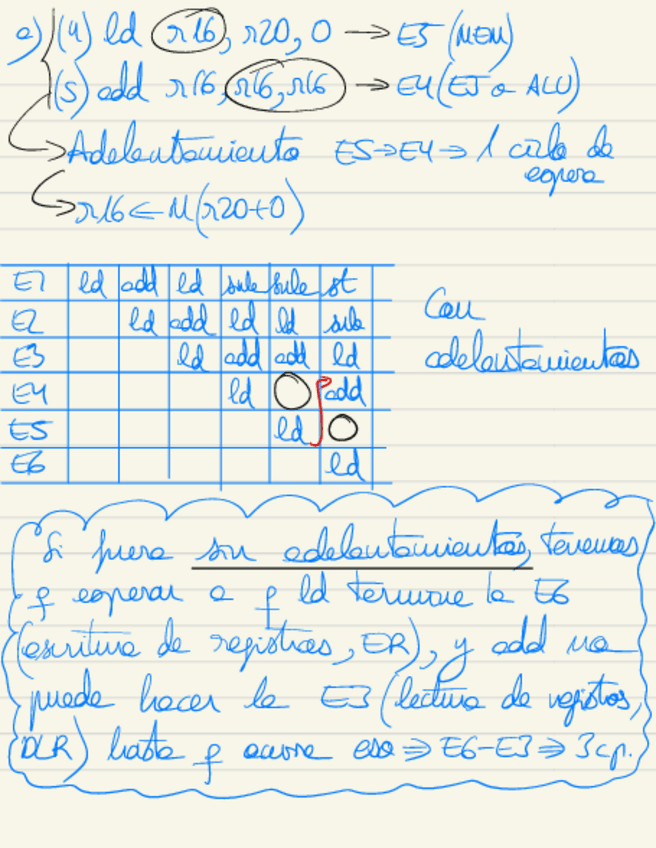 a) (4) ld r16, r20, 0 → E5 (MEM)
(5) add r16, r16, r16 → E4 (EJ o ALU)
→ Adelantamiento E5→E4→ 1 ciclo de
espera
→ r16 ← M(r20+0)
E1 ld add ld sub sub st
E2 ld add ld ld sub
E3 ld add add ld
E4 ld add
E5 ld
E6 ld
Con
adelantamientos
Si fuera sin adelantamientos, tenemos
q esperar a q ld termine la E6
(escritura de registros, ER), y add no
puede hacer la E3 (lectura de registros,
DLR) hasta q ocurre eso ⇒ E6-E3 ⇒ 3 cp.